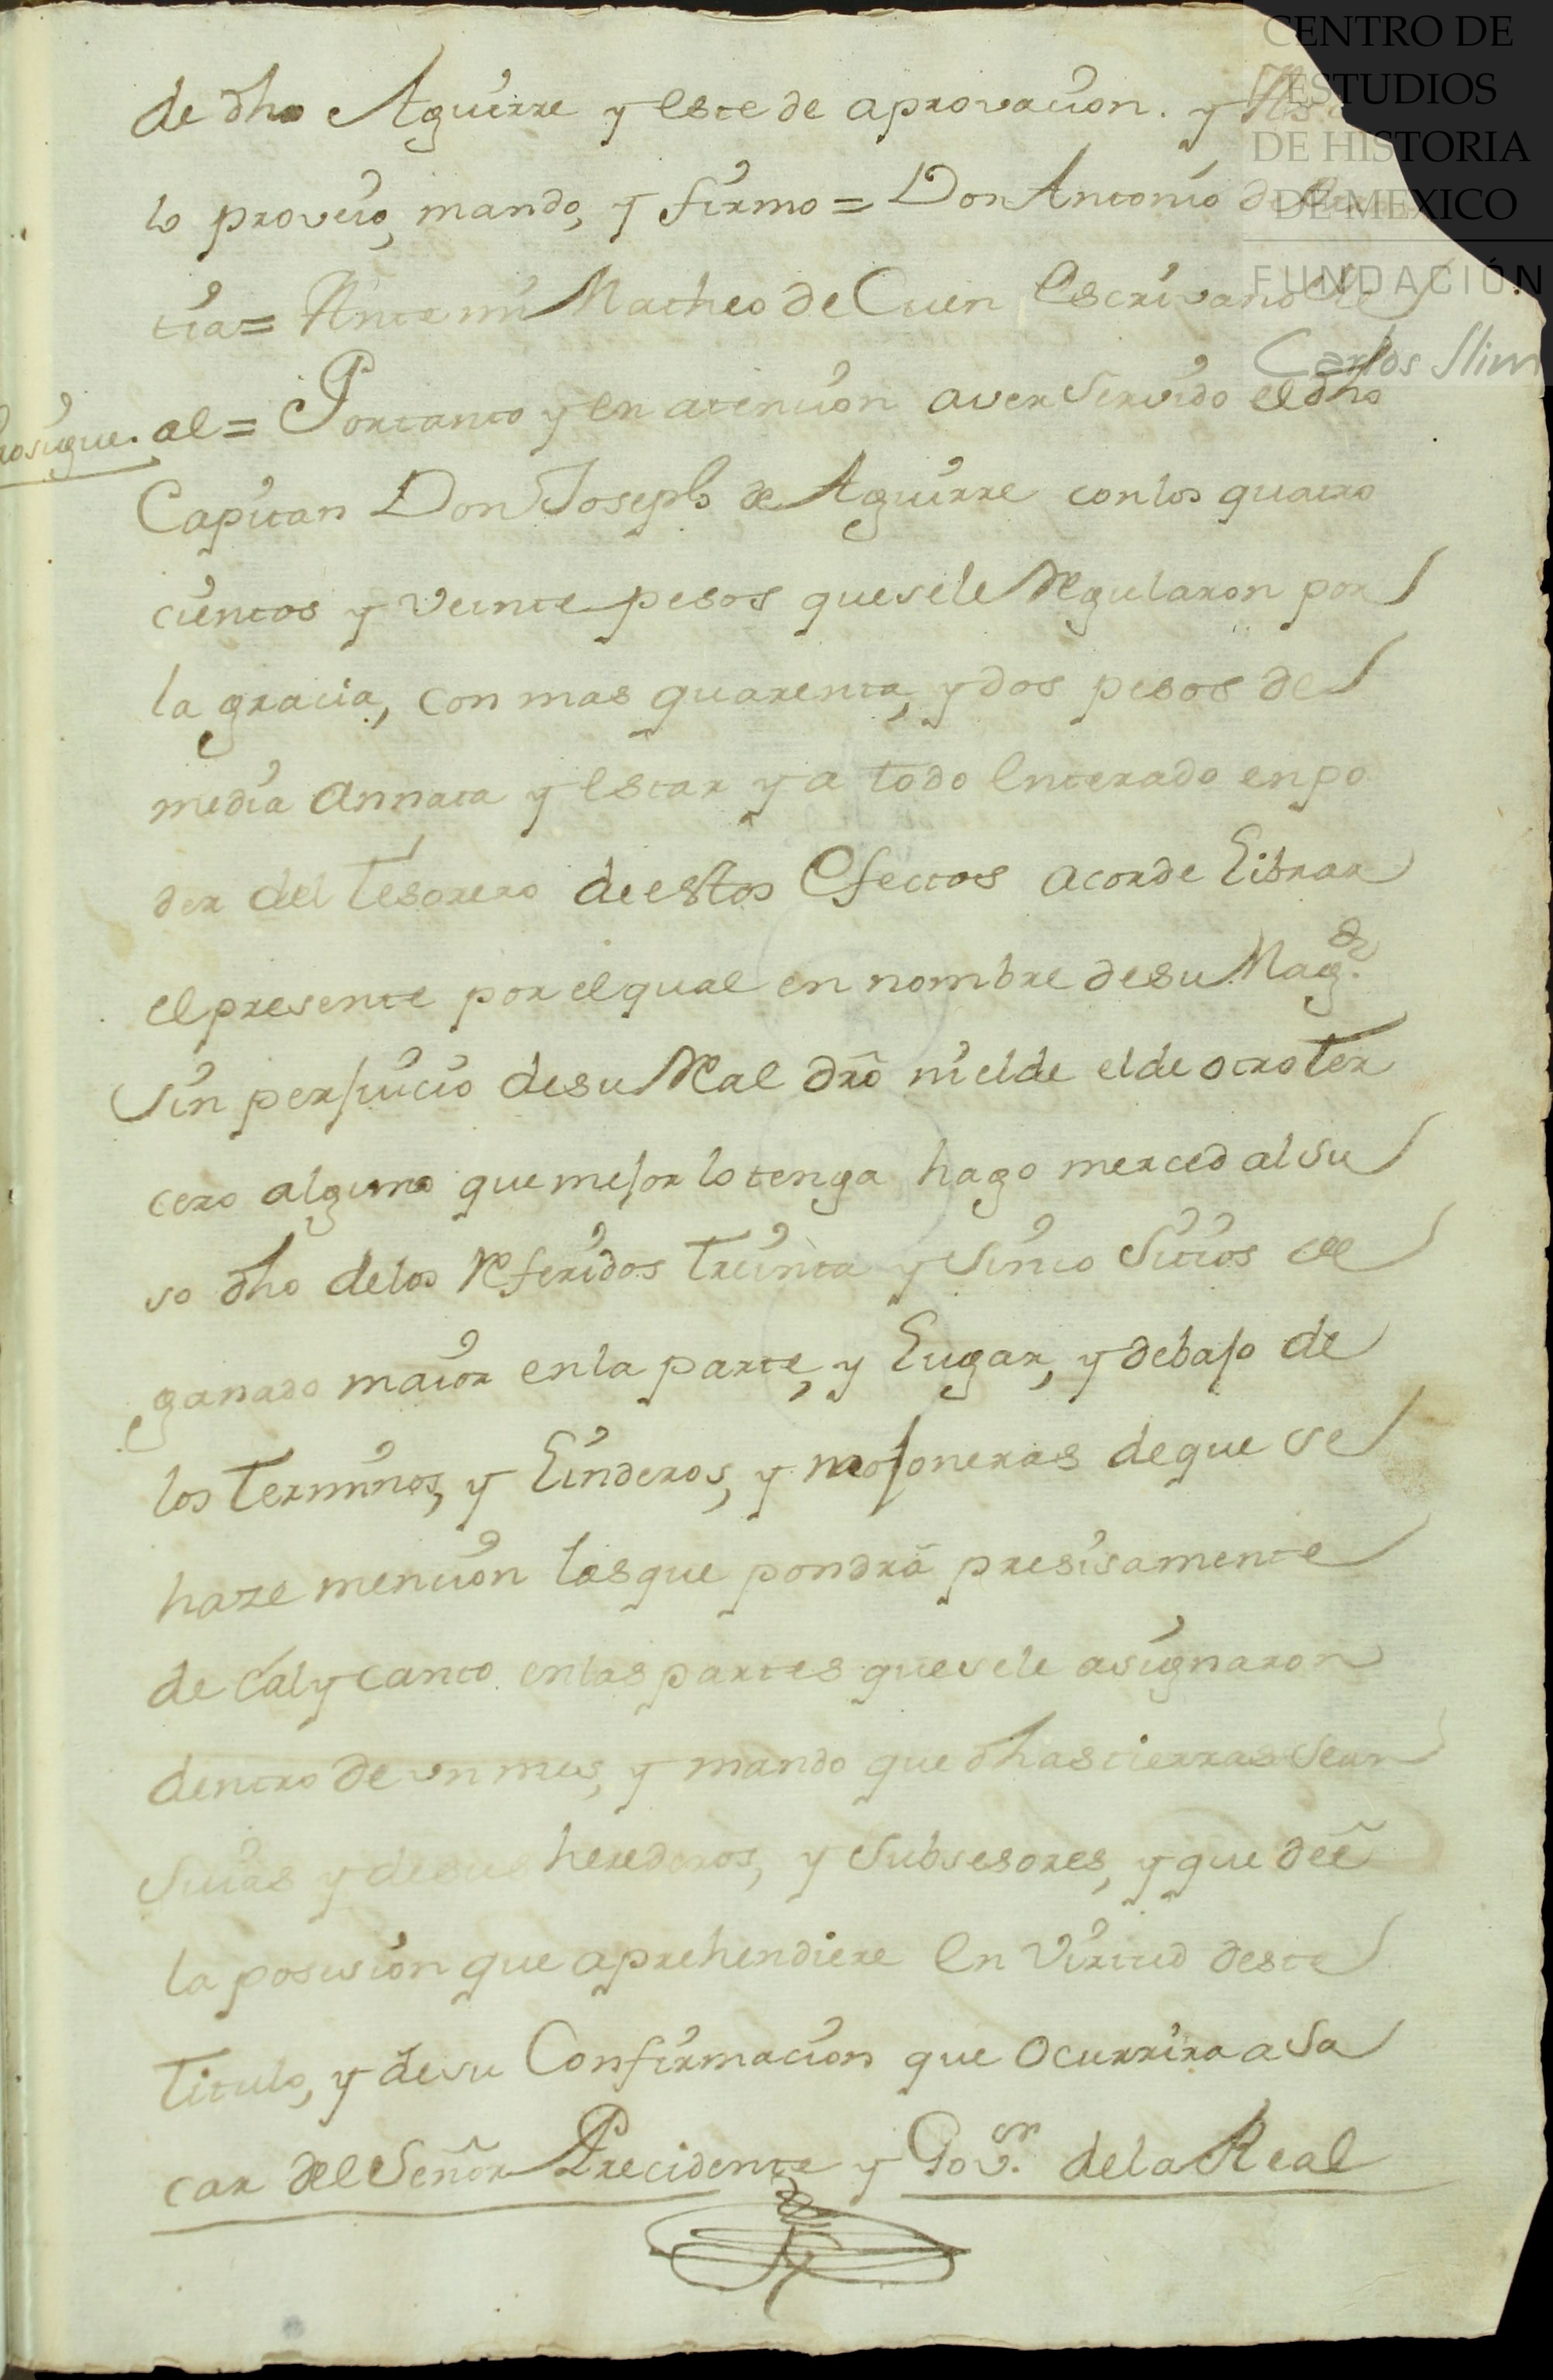 CENTRO DE
ESTUDIOS
DE HISTORIA
DE MEXICO
FUNDACIÓN
Carlos Slim
de dho Aguirre y este de aprovacion. y
lo proveio, mando, y firmo = Don Antonio de
tia = Ante mi Matheo de Cuen Escrivano Re
al = Portanto y en atencion aver servido el dho
Capitan Don Joseph de Aguirre con los quatro
cientos y veinte pesos que se le Regularon por
la gracia, con mas quarenta, y dos pesos de
media annata y estar ya todo enterado en po
der del tesorero de estos efectos acorde Librar
el presente por el qual en nombre de su Magd.
sin perjuicio de su Real dro ni el de el de otro ter
cero alguno que mejor lo tenga hago merced al su
so dho de los Referidos treinta y sinco sitios de
ganado maior en la parte, y Lugar, y debajo de
los terminos, y Linderos, y mojoneras de que se
haze mencion las que pondrá presisamente
de Cal y canto en las partes que se le asignaron
dentro de un mes, y mando que dhas tierras sean
suias y de sus herederos, y subsesores, y que dèl
la posision que aprehendiere en Virtud deste
titulo, y de su Confirmacion que ocurrira a sa
car del Señor Precidente y Govor. de la Real